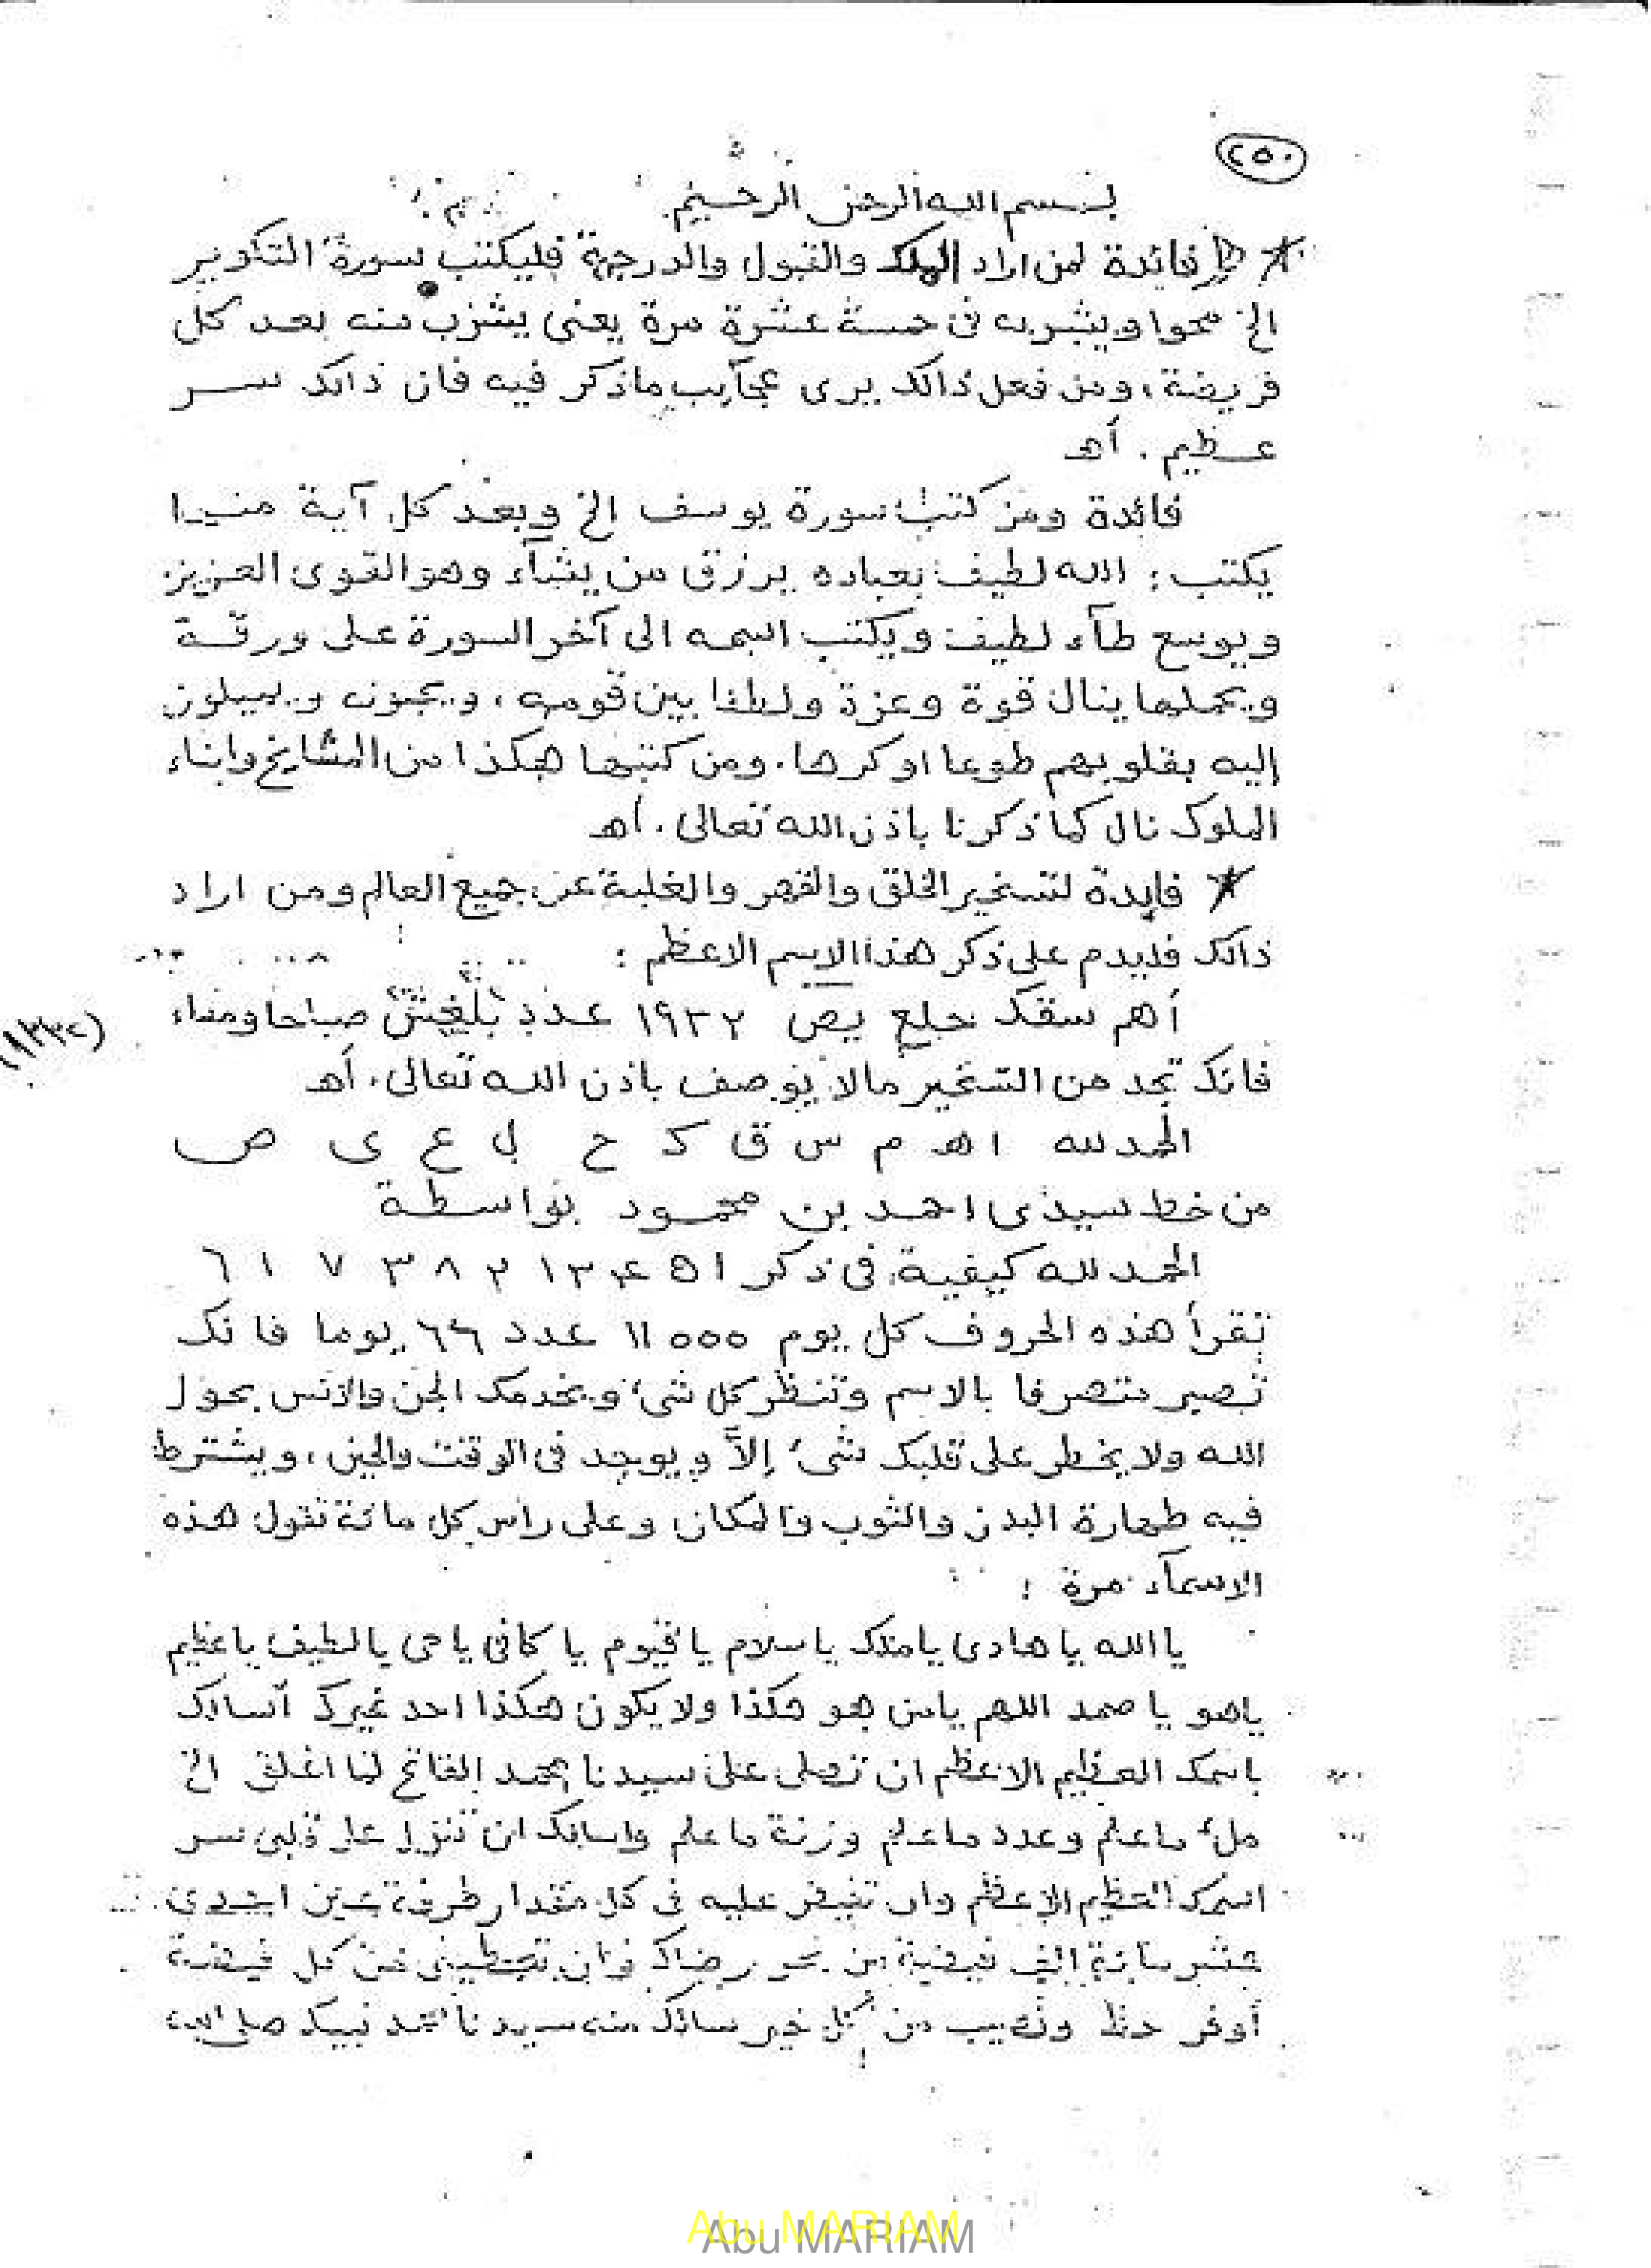 ٢٥٠
بسم الله الرحمن الرحيم
فائدة لمن اراد الملك والقبول والدرجة فليكتب سورة التكوير
الخ محوا ويشربه في خمسة عشرة مرة يعنى يشرب منه بعد كل
فريضة، ومن فعل ذالك يرى عجآيب ماذكر فيه فان ذالك سر
عظيم . أهـ
فائدة ومن كتب سورة يوسف الخ وبعد كل آية منها
يكتب : الله لطيف بعباده يرزق من يشآء وهو القوى العزيز
ويوسع طآء لطيف ويكتب اسمه الى آخر السورة على ورقة
ويحملها ينال قوة وعزة ولطفا بين قومه ، ويحبونه ويميلون
إليه بقلوبهم طوعا اوكرها . ومن كتبها هكذا من المشايخ وابناء
الملوك نال كما ذكرنا باذن الله تعالى . أهـ
فايدة لتسخير الخلق والقهر والغلبة عن جميع العالم ومن اراد
ذالك فليدم على ذكر هذا الاسم الاعظم :
أهم سقك حلع يص ١٩٣٢ عدد بلغيش صباحا ومساء
(١٣٣٢)
فانك تجد من التسخير مالا يوصف باذن الله تعالى . أهـ
الحمد لله ا هـ م س ق ك ح ل ع ى ص
من خط سيدى احمد بن محمود بواسطة
الحمد لله كيفية في ذكر ا ٥ ٤ ٣ ١ ٢ ٨ ٣ ٧ ١ ٦
تقرأ هذه الحروف كل يوم ١١٥٥٥ عدد ٦٦ يوما فانك
تصير متصرفا بالاسم وتنظر كل شىء ويخدمك الجن والانس بحول
الله ولا يخطر على قلبك شىء إلاّ ويوجد في الوقت والحين ، ويشترط
فيه طهارة البدن والثوب والمكان وعلى راس كل مائة تقول هذه
الاسمآء مرة :
يا الله يا هادى يا ملك يا سلام يا قيوم يا كافى يا حى يا لطيف يا عظيم
ياهو يا صمد اللهم يامن هو هكذا ولا يكون هكذا احد غيرك أسالك
باسمك العظيم الاعظم ان تصلى على سيدنا محمد الفاتح لما اغلق الخ
ملء ماعلم وعدد ماعلم وزنة ماعلم واسالك ان تنزل على قلبى سر
اسمك العظيم الاعظم وان تفيض عليه فى كل مقدار طرفة عين احدى
عشر مائة الف فيضة من بحر رضاك وان تعطينى من كل فيضة
أوفر حظ ونصيب من كل خير سالك منه سيدنا محمد نبيك صلى الله
Abu MARIAM
Abu MARIAM